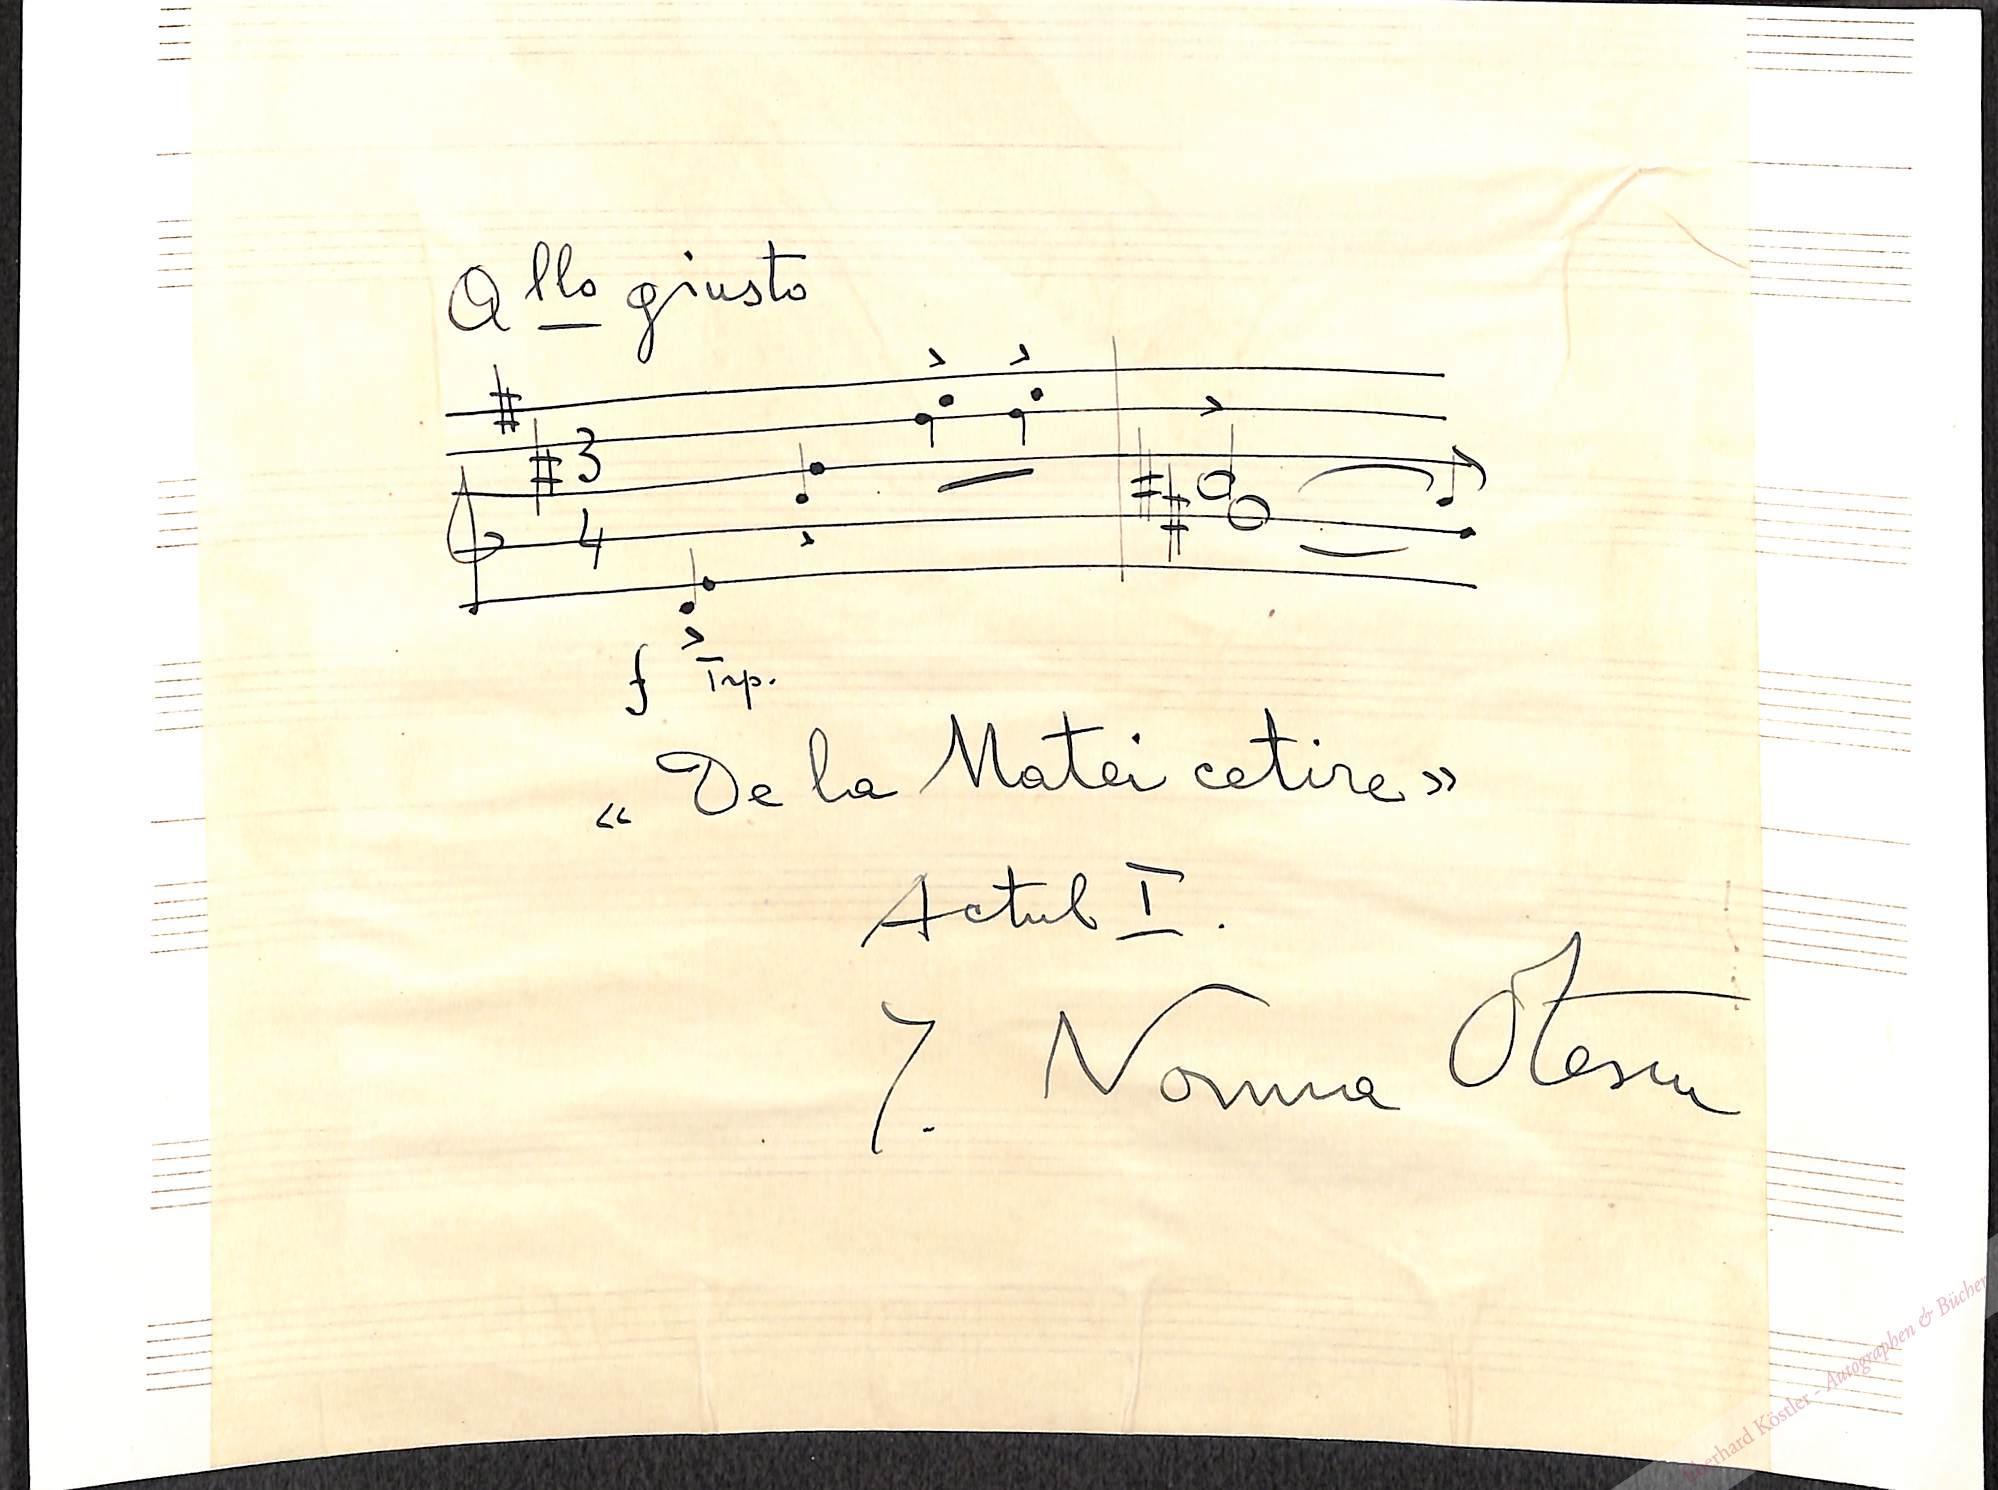 Allo giusto
3
4
f Trp.
« De la Matei cetire »
Actul I.
I. Nonna Otescu
Eberhard Köstler - Autographen & Bücher